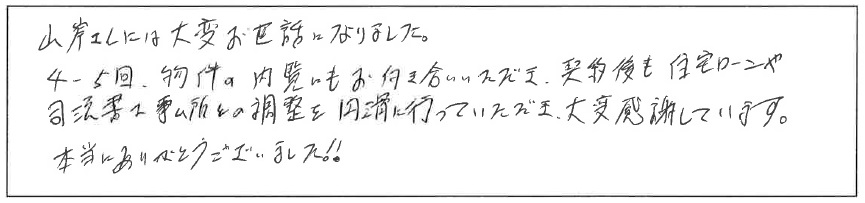 山岸さんには大変お世話になりました。
4-5回、物件の内覧にもお付き合いいただき、契約後も住宅ローンや
司法書士事務所との調整を円滑に行っていただき、大変感謝しています。
本当にありがとうございました!!